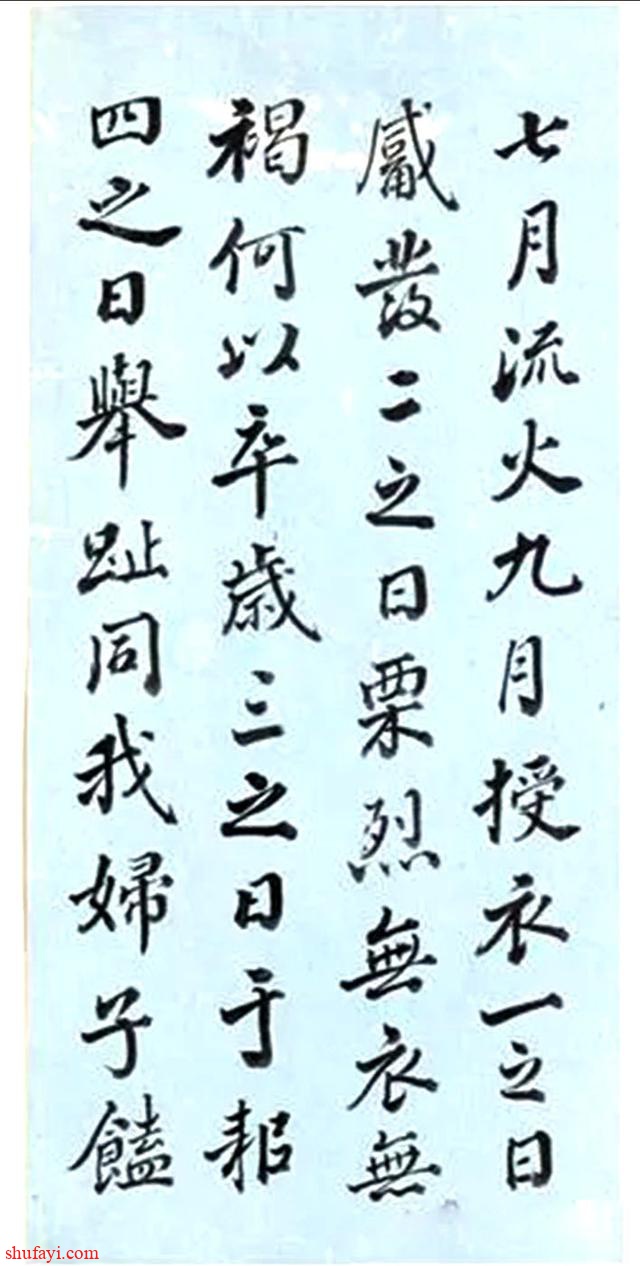 七月流火九月授衣一之日
觱發二之日栗烈無衣無
褐何以卒歲三之日于耜
四之日舉趾同我婦子饁
shufayi.com